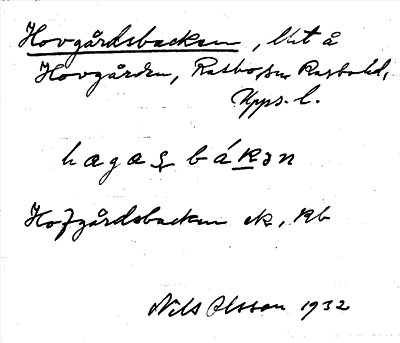 Hovgårdsbacken, lht å
Hovgården, Rasbo sn, Rasbo hd,
Upps. l.
Hofgårdsbacken ek, Kb
Nils Olsson 1932